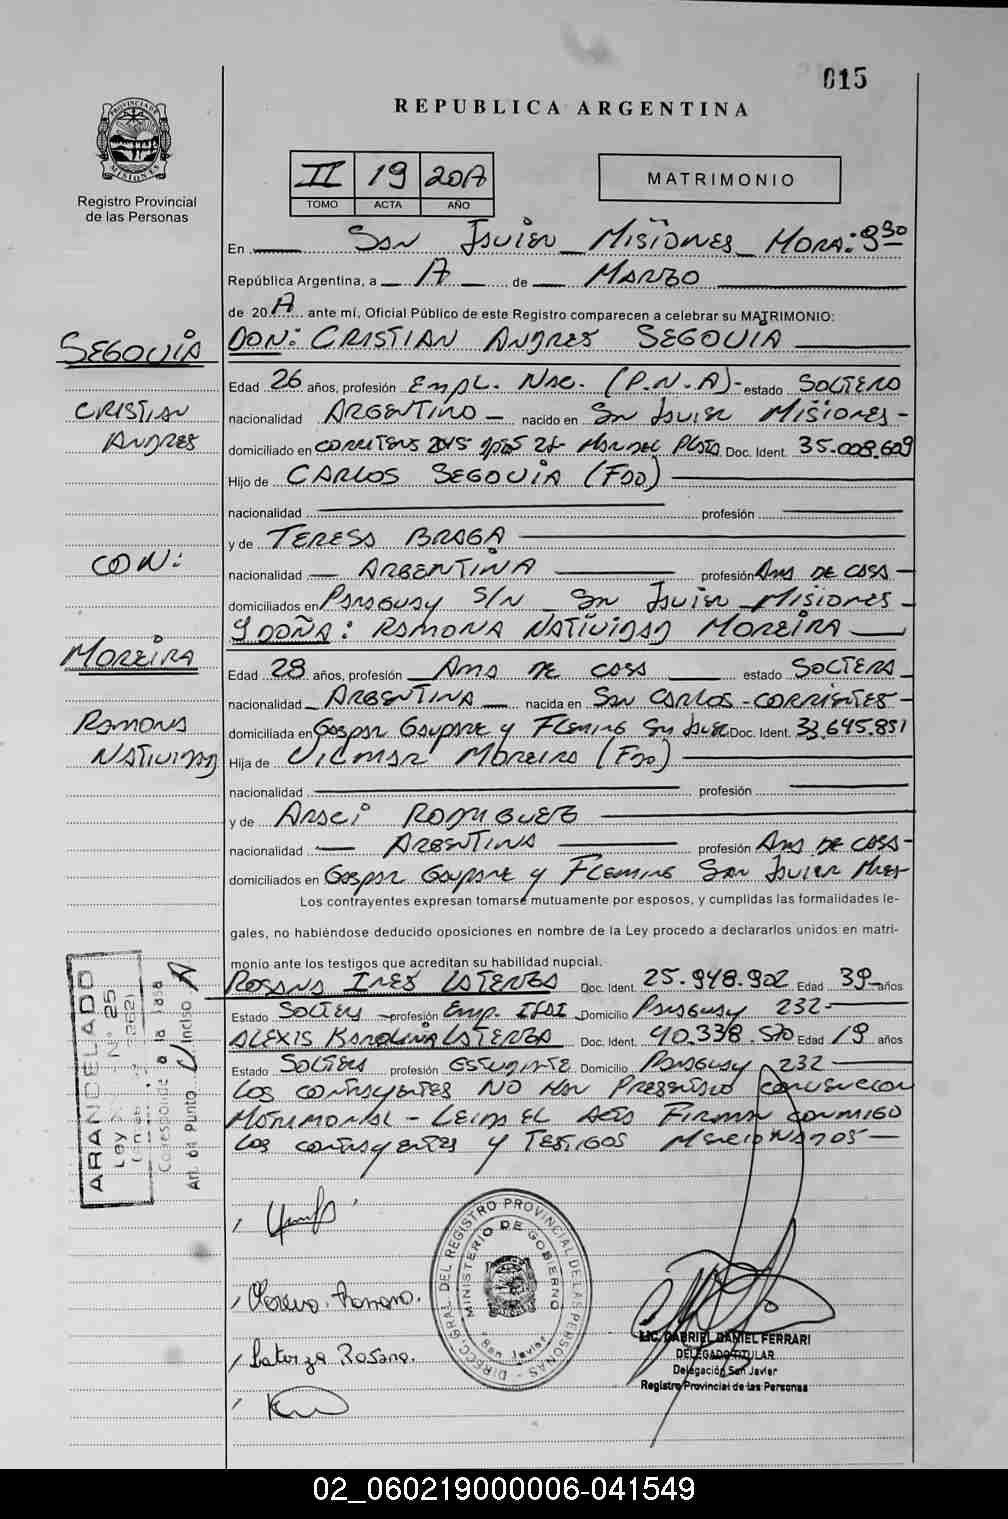 015
REPUBLICA ARGENTINA
PROVINCIA DE MISIONES
Registro Provincial
de las Personas
II 19 20A
TOMO ACTA AÑO
MATRIMONIO
En San Javier Misiones Hora: 9 30
República Argentina, a A de Marzo
de 20A ante mí, Oficial Público de este Registro comparecen a celebrar su MATRIMONIO:
SEGOVIA
CRISTIAN
ANDRES
CON:
MOREIRA
RAMONA
NATIVIDAD
DON: CRISTIAN ANDRES SEGOVIA
Edad 26 años, profesión Empl. Nac. (P.N.A) - estado SOLTERO
nacionalidad ARGENTINO - nacido en San Javier Misiones -
domiciliado en Corrientes 2015 Mar del Plata Doc. Ident. 35.008.609
Hijo de CARLOS SEGOVIA (Fdo)
nacionalidad profesión
y de TERESA BRAGA
nacionalidad ARGENTINA profesión Ama de casa -
domiciliados en Paraguay S/N San Javier - Misiones -
Y DOÑA: RAMONA NATIVIDAD MOREIRA
Edad 28 años, profesión Ama de casa estado SOLTERA
nacionalidad ARGENTINA nacida en San Carlos - Corrientes -
domiciliada en Gaspar y Fleming San Javier Doc. Ident. 33.645.851
Hija de Vilmar Moreira (Fdo)
nacionalidad profesión
y de Araci
nacionalidad ARGENTINA profesión Ama de casa -
domiciliados en Gaspar y Fleming San Javier Mnes -
Los contrayentes expresan tomarse mutuamente por esposos, y cumplidas las formalidades le-
gales, no habiéndose deducido oposiciones en nombre de la Ley procedo a declararlos unidos en matri-
monio ante los testigos que acreditan su habilidad nupcial.
ROSANA INES LATERZA Doc. Ident. 25.948.902 Edad 39 años
Estado Soltera profesión Emp. Domicilio Paraguay 232 -
ALEXIS KAROLINA LATERZA Doc. Ident. 40.338.570 Edad 19 años
Estado Soltera profesión Estudiante Domicilio Paraguay 232
Los contrayentes NO han presentado convencion
Matrimonial - Leida el Acta Firman conmigo
los contrayentes y Testigos Mencionados -
ARANCELADO
Ley N° 25
Corresponde a la tasa
Art. 6º Punto C/ Inciso A
Moreira Ramona.
Laterza Rosana.
DIRECC. GRAL. DEL REGISTRO PROVINCIAL DE LAS PERSONAS
MINISTERIO DE GOBIERNO
San Javier
LIC. GABRIEL DANIEL FERRARI
DELEGADO TITULAR
Delegación San Javier
Registro Provincial de las Personas
02_060219000006-041549